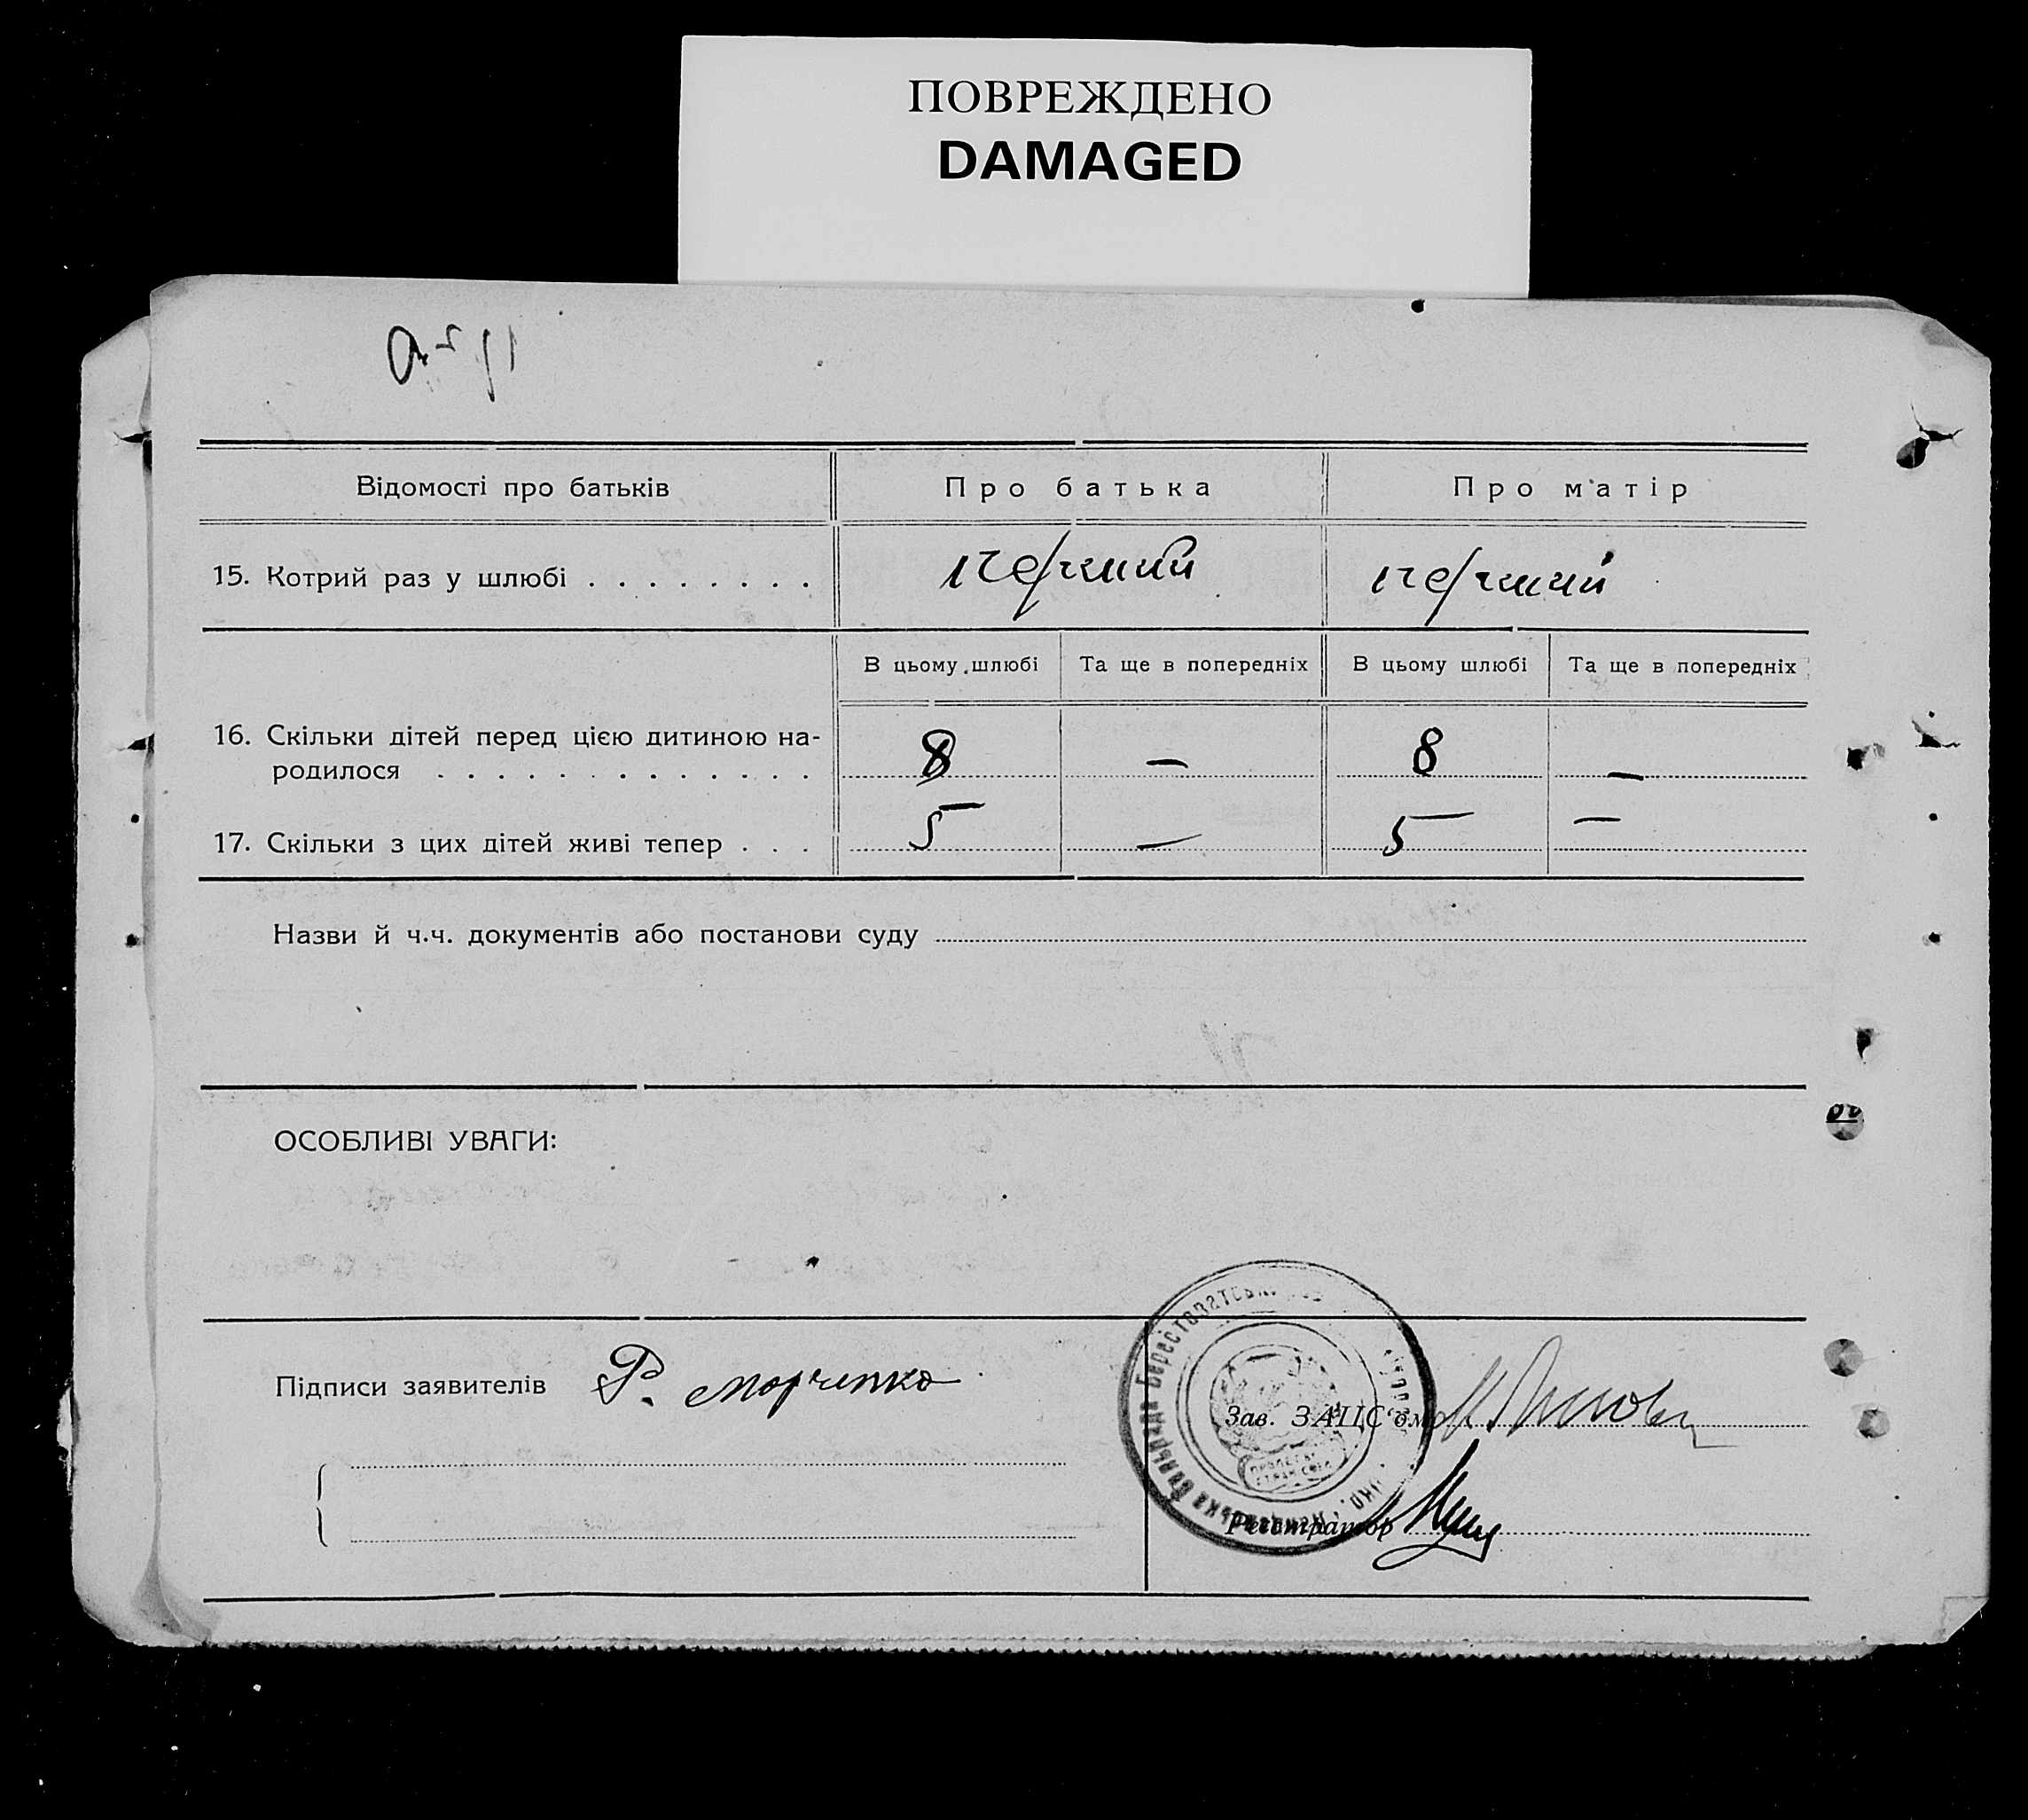 ПОВРЕЖДЕНО
DAMAGED
Відомості про батьків
Про батька
Про матір
15. Котрий раз у шлюбі . . . . . . . .
перший
перший
В цьому шлюбі
Та ще в попередніх
В цьому шлюбі
Та ще в попередніх
16. Скільки дітей перед цією дитиною на-
родилося . . . . . . . . . . . . .
8
—
8
—
17. Скільки з цих дітей живі тепер . . .
5
—
5
—
Назви й ч.ч. документів або постанови суду
ОСОБЛИВІ УВАГИ:
Підписи заявителів
Р. Марченко
Зав. ЗАЦС'ом
Реєстратор